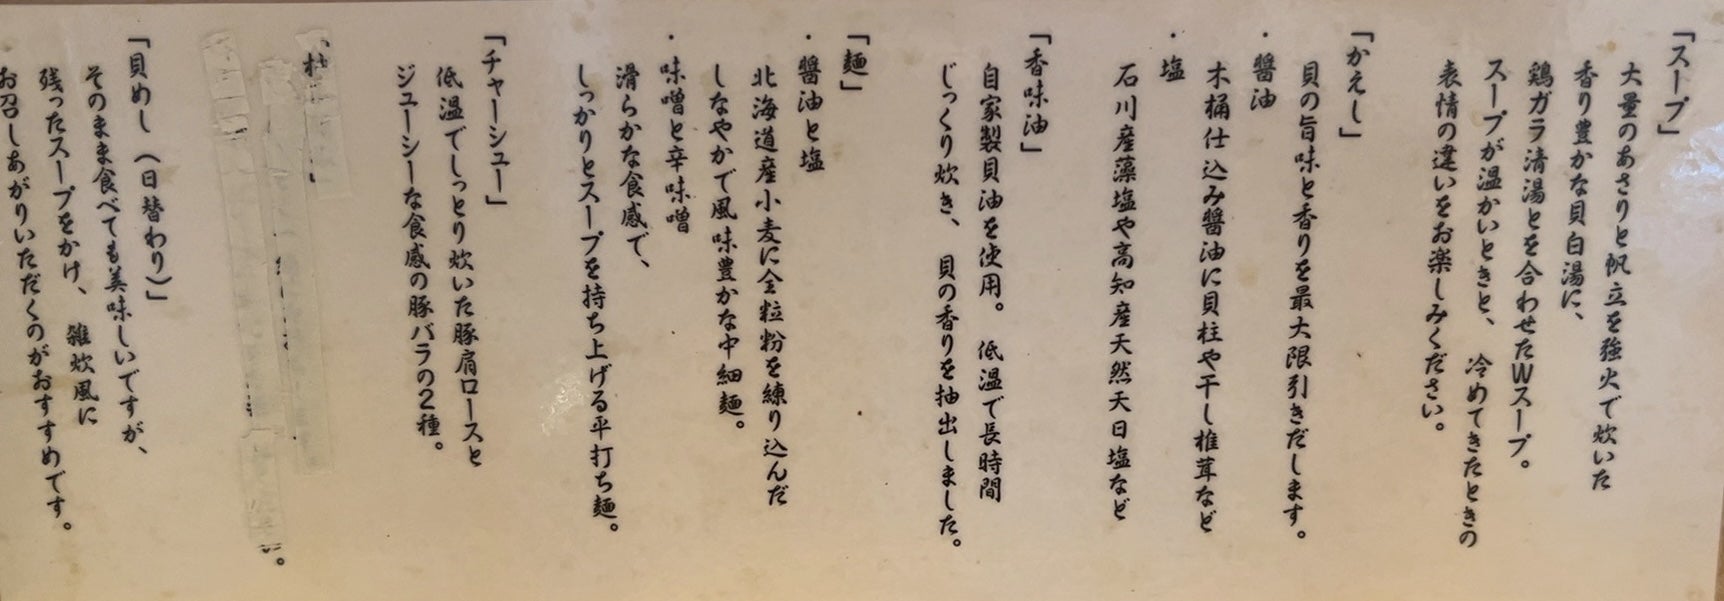 「スープ」
大量のあさりと帆立を強火で炊いた
香り豊かな貝白湯に、
鶏ガラ清湯とを合わせたWスープ。
スープが温かいときと、冷めてきたときの
表情の違いをお楽しみください。
「かえし」
貝の旨味と香りを最大限引きだします。
・醤油
木桶仕込み醤油に貝柱や干し椎茸など
・塩
石川産藻塩や高知産天然天日塩など
「香味油」
自家製貝油を使用。低温で長時間
じっくり炊き、貝の香りを抽出しました。
「麺」
・醤油と塩
北海道産小麦に全粒粉を練り込んだ
しなやかで風味豊かな中細麺。
・味噌と辛味噌
滑らかな食感で、
しっかりとスープを持ち上げる平打ち麺。
「チャーシュー」
低温でしっとり炊いた豚肩ロースと
ジューシーな食感の豚バラの2種。
「貝めし(日替わり)」
そのまま食べても美味しいですが、
残ったスープをかけ、雑炊風に
お召しあがりいただくのがおすすめです。